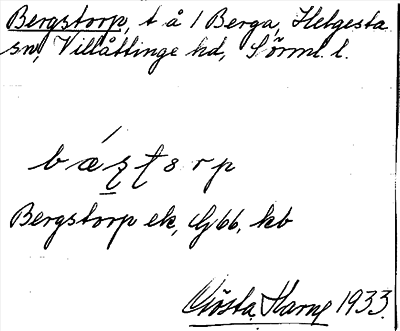 Bergstorp, t å 1 Berga, Helgesta
sn, Villåttinge hd, Sörml. l.
Bergstorp ek, G 66, kb
Gösta Harne 1933.